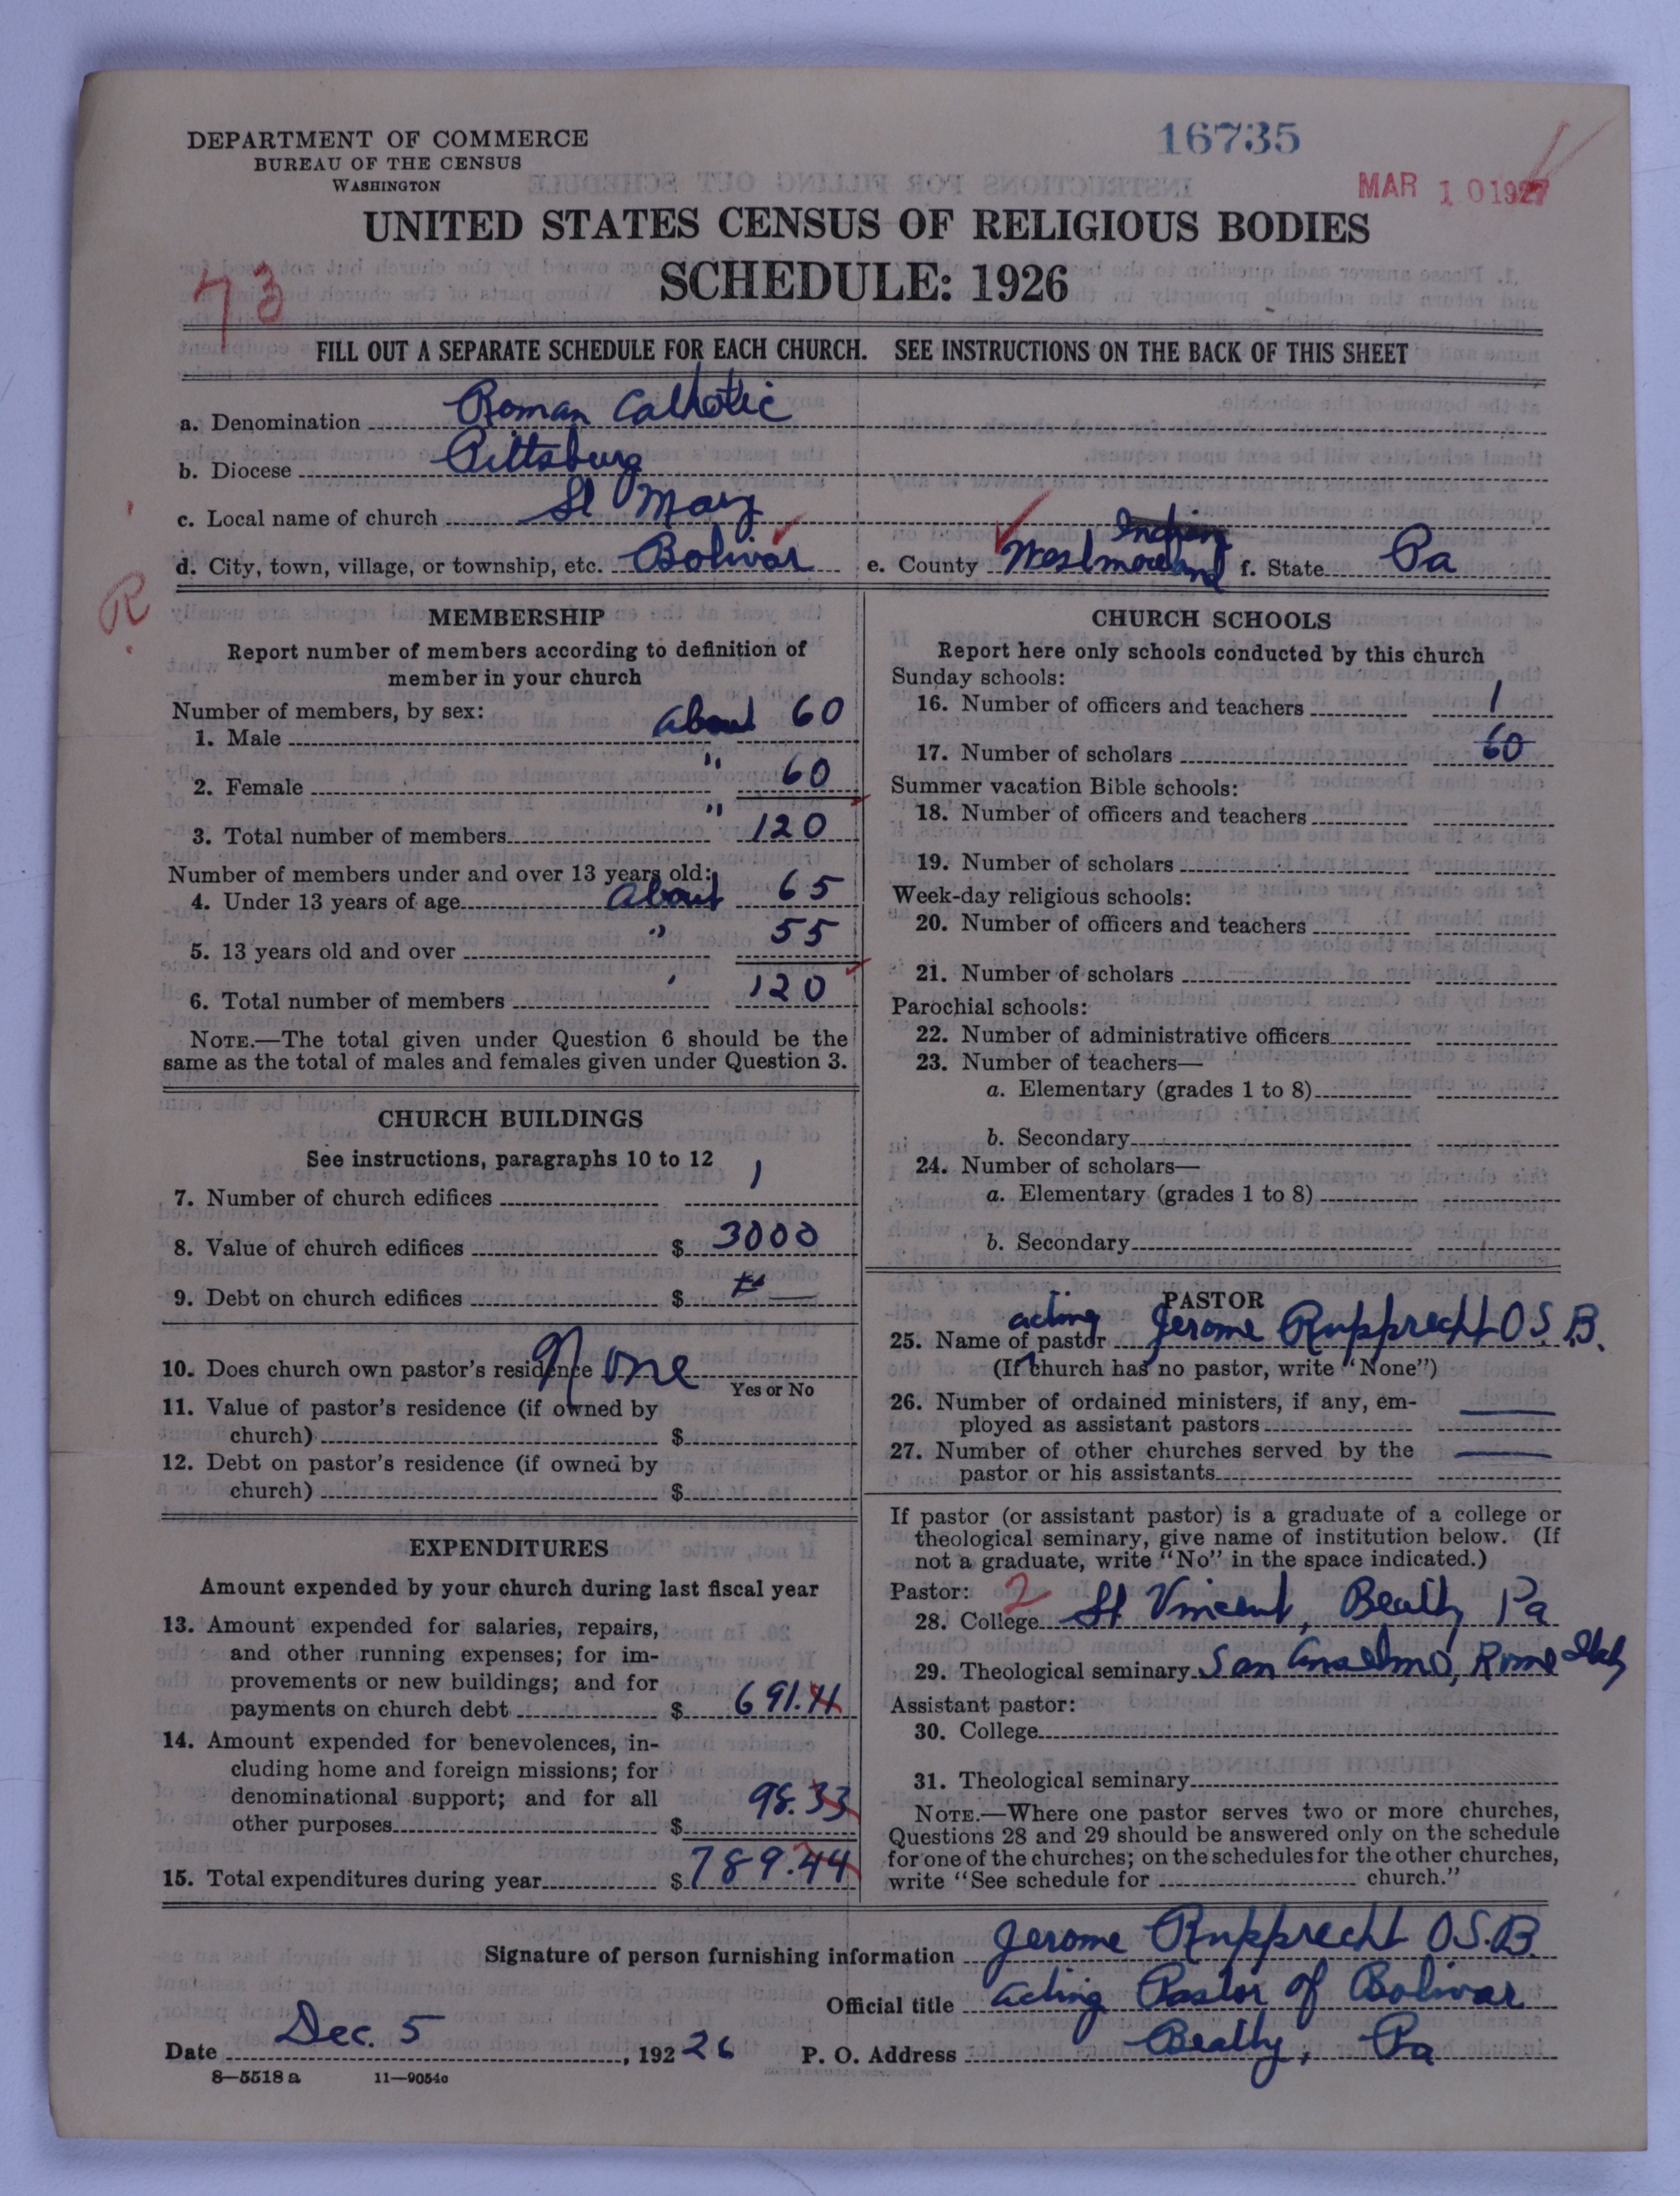 DEPARTMENT OF COMMERCE
BUREAU OF THE CENSUS
WASHINGTON
16735
MAR 10 1927
UNITED STATES CENSUS OF RELIGIOUS BODIES
SCHEDULE: 1926
73
FILL OUT A SEPARATE SCHEDULE FOR EACH CHURCH. SEE INSTRUCTIONS ON THE BACK OF THIS SHEET
a. Denomination Roman Catholic
b. Diocese Pittsburg
c. Local name of church St Mary
d. City, town, village, or township, etc. Bolivar e. County Westmoreland f. State Pa
R
MEMBERSHIP
Report number of members according to definition of
member in your church
Number of members, by sex:
1. Male about 60
2. Female " 60
3. Total number of members " 120
Number of members under and over 13 years old:
4. Under 13 years of age about 65
5. 13 years old and over " 55
6. Total number of members ' 120
NOTE.—The total given under Question 6 should be the
same as the total of males and females given under Question 3.
CHURCH BUILDINGS
See instructions, paragraphs 10 to 12
7. Number of church edifices 1
8. Value of church edifices $ 3000
9. Debt on church edifices $ —
10. Does church own pastor's residence None
Yes or No
11. Value of pastor's residence (if owned by
church) $
12. Debt on pastor's residence (if owned by
church) $
EXPENDITURES
Amount expended by your church during last fiscal year
13. Amount expended for salaries, repairs,
and other running expenses; for im-
provements or new buildings; and for
payments on church debt $ 691.11
14. Amount expended for benevolences, in-
cluding home and foreign missions; for
denominational support; and for all
other purposes $ 98.33
15. Total expenditures during year $ 789.44
CHURCH SCHOOLS
Report here only schools conducted by this church
Sunday schools:
16. Number of officers and teachers 1
17. Number of scholars 60
Summer vacation Bible schools:
18. Number of officers and teachers
19. Number of scholars
Week-day religious schools:
20. Number of officers and teachers
21. Number of scholars
Parochial schools:
22. Number of administrative officers
23. Number of teachers—
a. Elementary (grades 1 to 8)
b. Secondary
24. Number of scholars—
a. Elementary (grades 1 to 8)
b. Secondary
PASTOR
acting
25. Name of pastor Jerome Rupprecht O.S.B.
(If church has no pastor, write "None")
26. Number of ordained ministers, if any, em-
ployed as assistant pastors —
27. Number of other churches served by the
pastor or his assistants —
If pastor (or assistant pastor) is a graduate of a college or
theological seminary, give name of institution below. (If
not a graduate, write "No" in the space indicated.)
Pastor: 2
28. College St Vincent, Beatty Pa
29. Theological seminary San Anselmo, Rome Italy
Assistant pastor:
30. College
31. Theological seminary
NOTE.—Where one pastor serves two or more churches,
Questions 28 and 29 should be answered only on the schedule
for one of the churches; on the schedules for the other churches,
write "See schedule for church."
Signature of person furnishing information Jerome Rupprecht O.S.B.
Official title acting Pastor of Bolivar
Date Dec. 5, 192 26 P. O. Address Beatty, Pa
8—5518 a 11—9054o